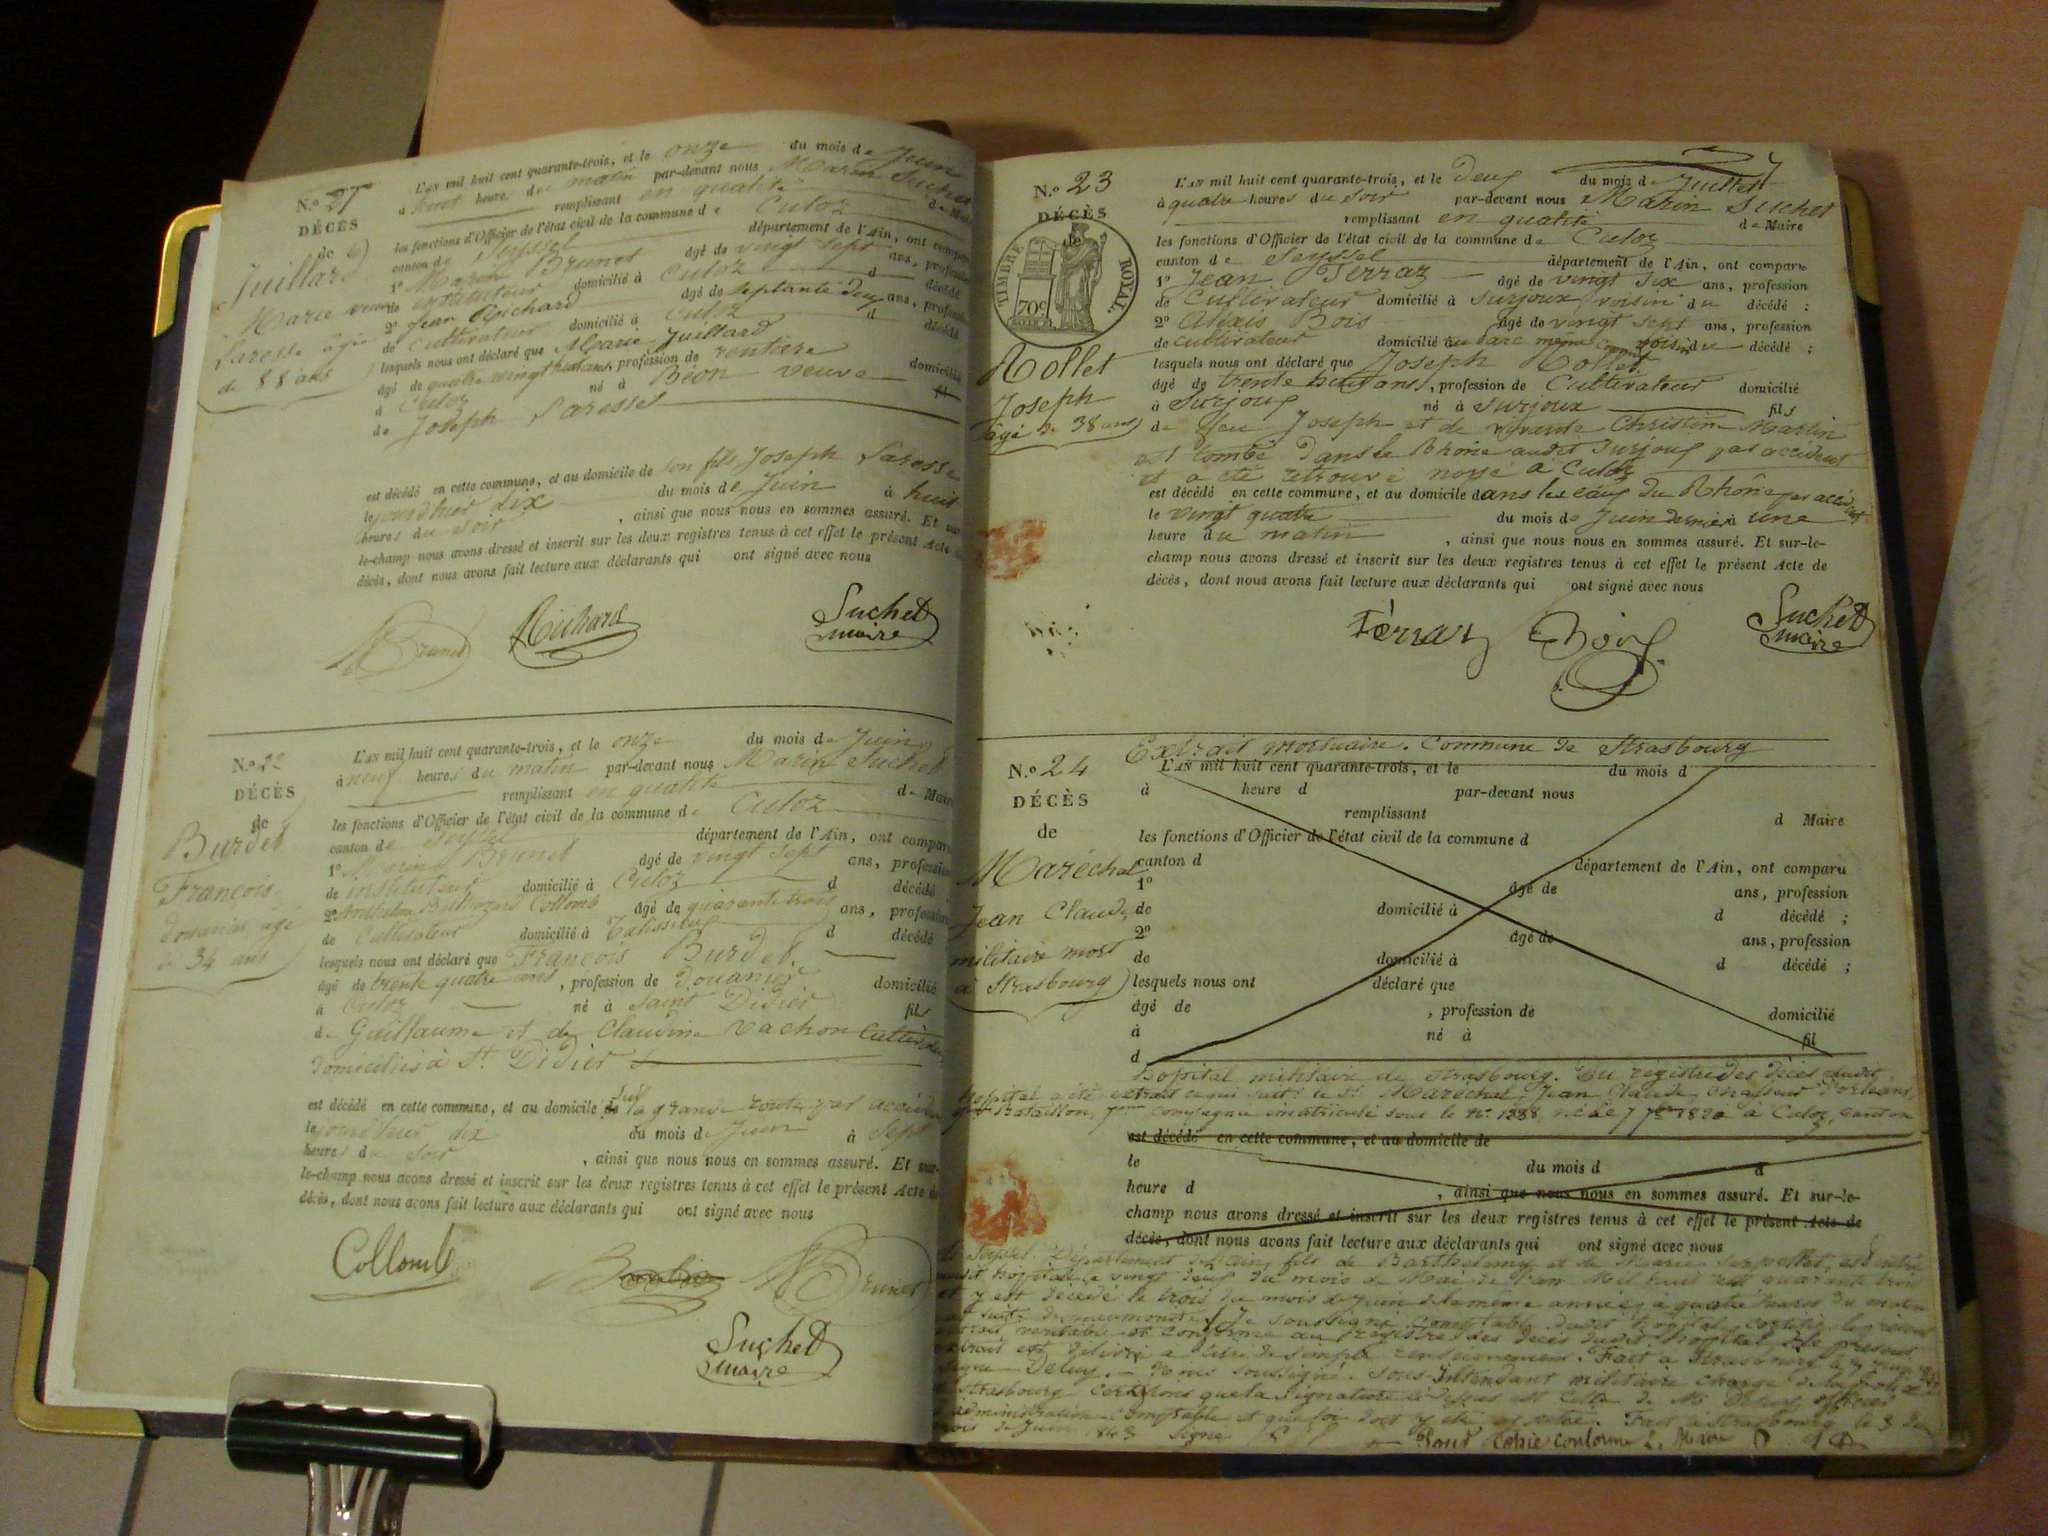 N.º 21
DÉCÈS
de
Juillard
Marie veuve
Laresse agée
de 88 ans
L'AN mil huit cent quarante-trois, et le onze du mois de Juin
à heures du matin par-devant nous Marin Suchet
remplissant en qualité de Maire
les fonctions d'Officier de l'état civil de la commune de Culoz
canton de Seyssel département de l'Ain, ont comparu
1º Marin Brunet âgé de vingt sept ans, profession
de instituteur domicilié à Culoz d décédé
2º Jean Richard âgé de septante deux ans, profession
de cultivateur domicilié à Culoz d décédé
lesquels nous ont déclaré que Marie Juillard
âgé de quatre vingt huit ans, profession de rentiere domicilié
à Culoz né à Béon veuve fil
de Joseph Laresse
est décédé en cette commune, et au domicile de son fils Joseph Laresse
le jourdhier dix du mois de Juin à huit
heures du soir, ainsi que nous nous en sommes assuré. Et sur-
le-champ nous avons dressé et inscrit sur les deux registres tenus à cet effet le présent Acte de
décès, dont nous avons fait lecture aux déclarants qui ont signé avec nous
Brunet Richard Suchet
maire
N.º 22
DÉCÈS
de
Burdet
François
douanier agé
de 34 ans
L'AN mil huit cent quarante-trois, et le onze du mois de Juin
à neuf heures du matin par-devant nous Marin Suchet
remplissant en qualité de Maire
les fonctions d'Officier de l'état civil de la commune de Culoz
canton de Seyssel département de l'Ain, ont comparu
1º Marin Brunet âgé de vingt sept ans, profession
de instituteur domicilié à Culoz d décédé
2º Anthelme Collomb âgé de quarante trois ans, profession
de Cultivateur domicilié à Talissieu d décédé
lesquels nous ont déclaré que François Burdet
âgé de trente quatre ans, profession de douanier domicilié
à Culoz né à Saint Didier fils
de Guillaume et de Claudine Vachon
domiciliés à St. Didier
est décédé en cette commune, et au domicile de sur la grande route par accident
le jourdhier dix du mois de Juin à sept
heures du soir, ainsi que nous nous en sommes assuré. Et sur-
le-champ nous avons dressé et inscrit sur les deux registres tenus à cet effet le présent Acte de
décès, dont nous avons fait lecture aux déclarants qui ont signé avec nous
Collomb Brunet
Suchet
maire
N.º 23
DÉCÈS
de
TIMBRE ROYAL
70 c
Rollet
Joseph
agé de 38 ans
L'AN mil huit cent quarante-trois, et le deux du mois de Juillet
à quatre heures du soir par-devant nous Marin Suchet
remplissant en qualité de Maire
les fonctions d'Officier de l'état civil de la commune de Culoz
canton de Seyssel département de l'Ain, ont comparu
1º Jean Ferraz âgé de vingt six ans, profession
de Cultivateur domicilié à Surjoux voisin du décédé ;
2º Alexis Bois âgé de vingt sept ans, profession
de cultivateur domicilié au Parc même voisin du décédé ;
lesquels nous ont déclaré que Joseph Rollet
âgé de trente huit ans, profession de Cultivateur domicilié
à Surjoux né à Surjoux fils
de feu Joseph et de vivante Christine Martin
est tombé dans le Rhône audit Surjoux par accident
et a été retrouvé noyé à Culoz
est décédé en cette commune, et au domicile dans les eaux du Rhône par accident
le vingt quatre du mois de Juin dernier à une
heure du matin, ainsi que nous nous en sommes assuré. Et sur-le-
champ nous avons dressé et inscrit sur les deux registres tenus à cet effet le présent Acte de
décès, dont nous avons fait lecture aux déclarants qui ont signé avec nous
Férraz Bois Suchet
maire
N.º 24
DÉCÈS
de
Maréchal
Jean Claude
militaire mort
à Strasbourg
Extrait mortuaire. Commune de Strasbourg
L'AN mil huit cent quarante-trois, et le du mois d
à heure d par-devant nous
remplissant d Maire
les fonctions d'Officier de l'état civil de la commune d
canton d département de l'Ain, ont comparu
1º âgé de ans, profession
de domicilié à d décédé ;
2º âgé de ans, profession
de domicilié à d décédé ;
lesquels nous ont déclaré que
âgé de , profession de domicilié
à né à fil
d
hopital militaire de Strasbourg. Du régistre des décès dudit
hopital a été extrait ce qui suit: le Sr. Maréchal Jean Claude, chasseur d'orléans,
Bataillon, 7me Compagnie immatriculé sous le No. 1238 né le 7 1820 à Culoz, canton
est décédé en cette commune, et au domicile de
le du mois d à
heure d , ainsi que nous nous en sommes assuré. Et sur-le-
champ nous avons dressé et inscrit sur les deux registres tenus à cet effet le présent Acte de
décès, dont nous avons fait lecture aux déclarants qui ont signé avec nous
de Seyssel. Département de l'Ain, fils de Barthelemy et de Marie Serpollet, est entré
audit hopital le vingt deux du mois de Mai de l'an Mil huit cent quarante trois
et y est décédé le trois du mois de Juin de la même année, à quatre heures du matin
suite de pneumonite. Je soussigné Comptable dudit hopital certifie le présent
extrait véritable et conforme au registre des décès dudit hopital. Le présent
extrait est délivré à titre de simple renseignement. Fait à Strasbourg le
signé Deluy. Nous soussigné Sous Intendant militaire chargé de la police
Strasbourg certifions que la signature ci dessus est celle de Mr. Deluy officier
d'administration Comptable et que foi doit y être ajoutée. Fait à Strasbourg le 3 du
mois de Juin 1843 Signé
Pour Copie conforme Le Maire